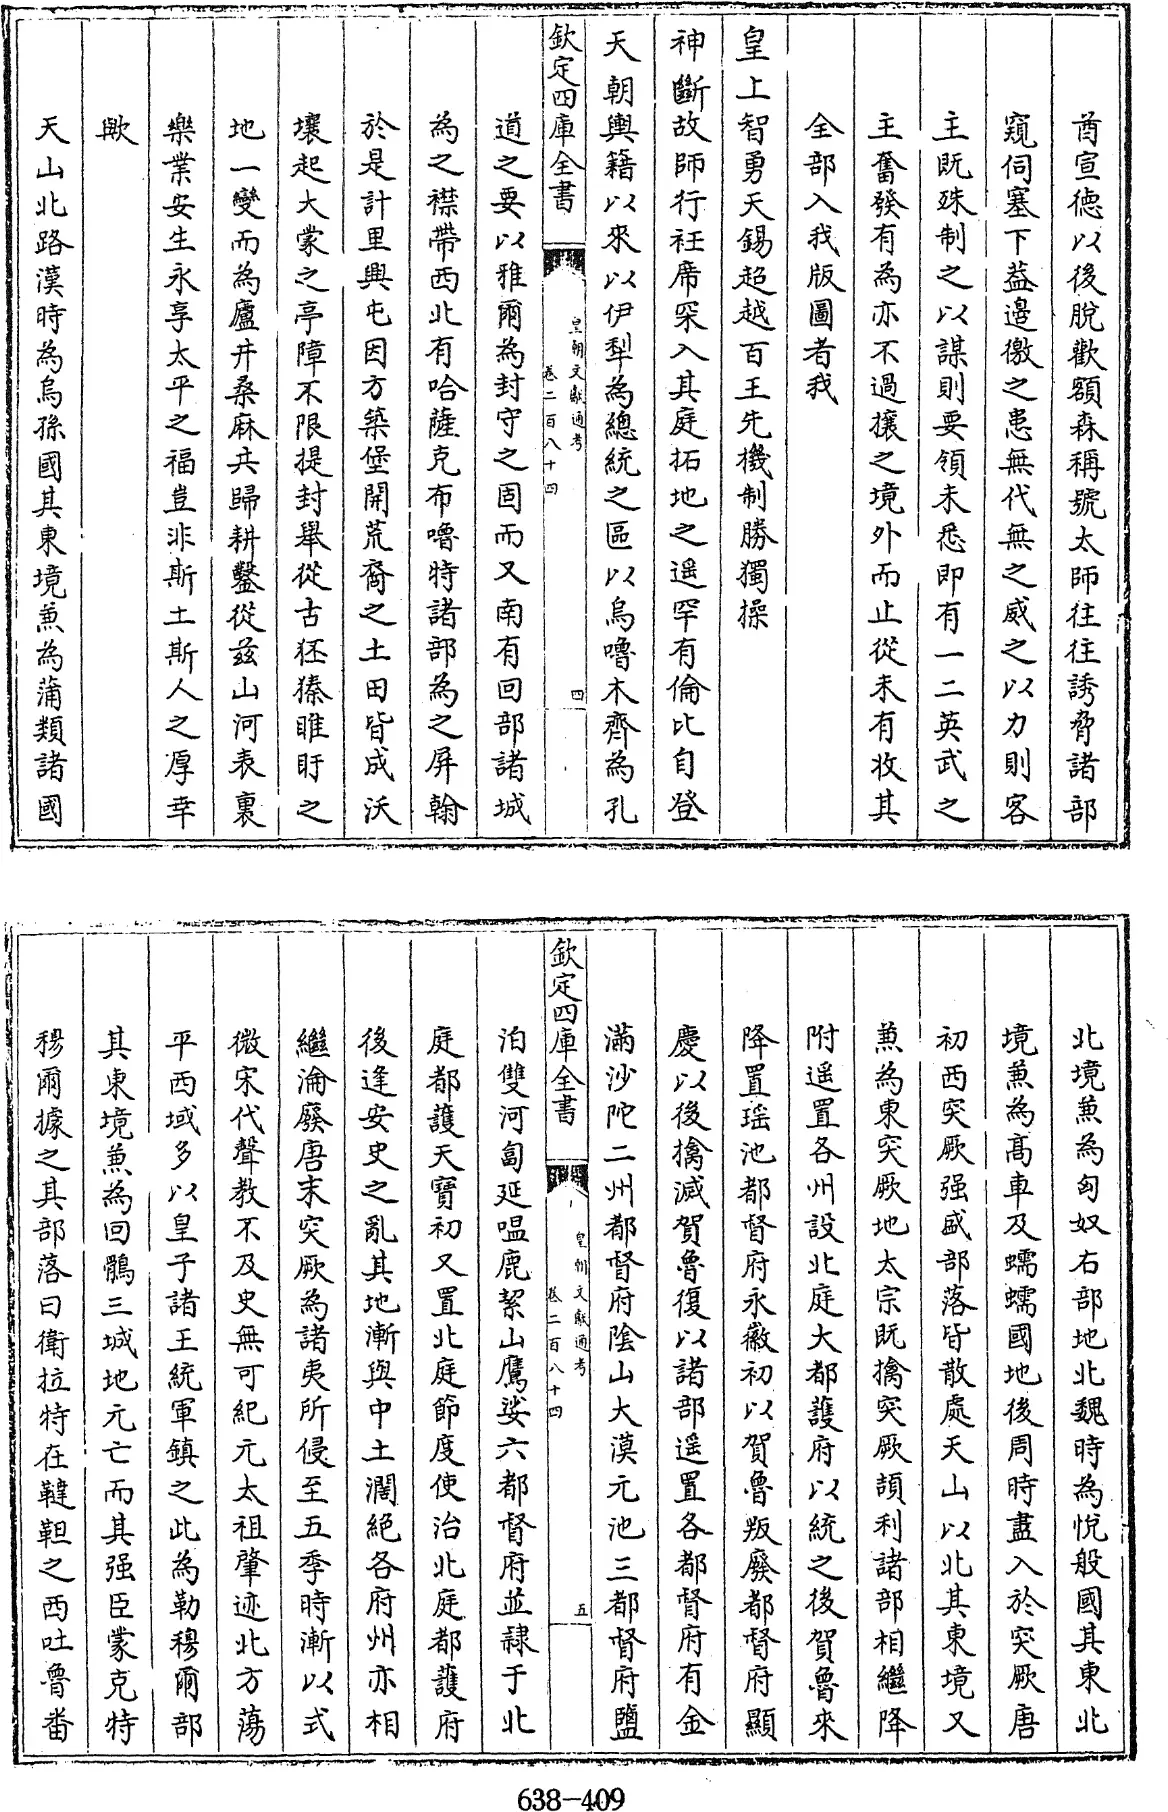 酋宣德以後脫歡額森稱號太師往往誘脅諸部
窺伺塞下益邊徼之患無代無之威之以力則客
主既殊制之以謀則要領未悉即有一二英武之
主奮發有為亦不過攘之境外而止從未有收其
全部入我版圖者我
皇上智勇天錫超越百王先機制勝獨操
神斷故師行袵席罙入其庭拓地之遥罕有倫比自登
天朝輿籍以來以伊犁為總統之區以烏嚕木齊為孔
欽定四庫全書
皇朝文獻通考
卷二百八十四
四
道之要以雅爾為封守之固而又南有回部諸城
為之襟帶西北有哈薩克布嚕特諸部為之屏翰
於是計里興屯因方築堡開荒裔之土田皆成沃
壤起大蒙之亭障不限提封舉從古狉獉睢盱之
地一變而為廬井桑麻共歸耕鑿從兹山河表裏
樂業安生永享太平之福豈非斯土斯人之厚幸
歟
天山北路漢時為烏孫國其東境兼為蒲類諸國
北境兼為匈奴右部地北魏時為悅般國其東北
境兼為髙車及蠕蠕國地後周時盡入於突厥唐
初西突厥强盛部落皆散處天山以北其東境又
兼為東突厥地太宗既擒突厥頡利諸部相繼降
附遥置各州設北庭大都護府以統之後賀魯來
降置瑶池都督府永徽初以賀魯叛廢都督府顯
慶以後擒滅賀魯復以諸部遥置各都督府有金
滿沙陀二州都督府陰山大漠元池三都督府鹽
欽定四庫全書
皇朝文獻通考
卷二百八十四
五
泊雙河匐延嗢鹿絜山鷹娑六都督府並隸于北
庭都護天寶初又置北庭節度使治北庭都護府
後逢安史之亂其地漸與中土濶絶各府州亦相
繼淪廢唐末突厥為諸夷所侵至五季時漸以式
微宋代聲教不及史無可紀元太祖肇迹北方蕩
平西域多以皇子諸王統軍鎮之此為勒穆爾部
其東境兼為回鶻三城地元亡而其强臣蒙克特
穆爾據之其部落曰衛拉特在韃靼之西吐魯番
638-409